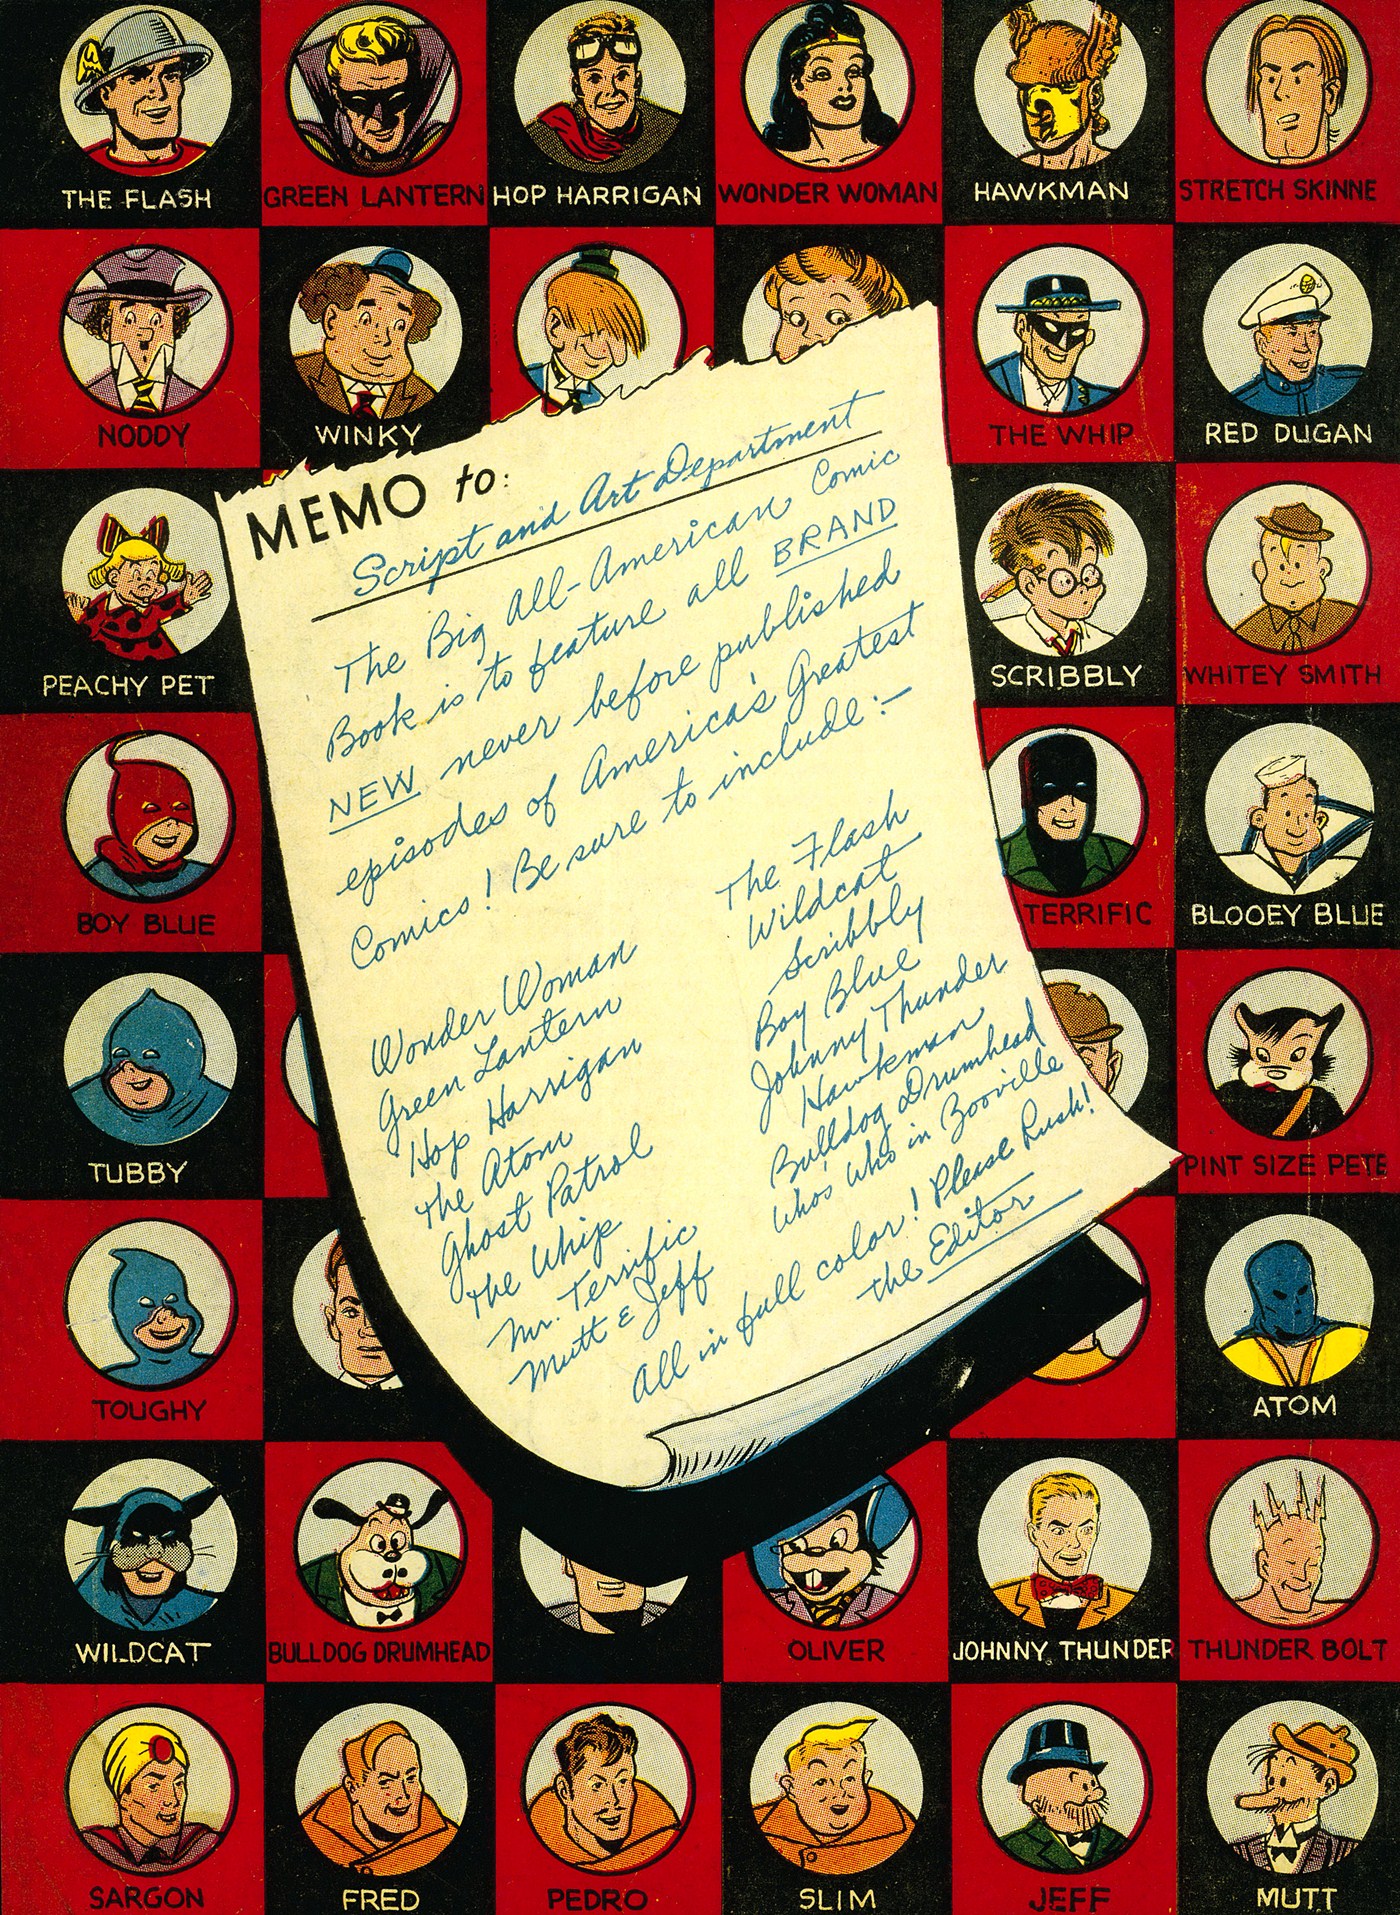 THE FLASH
GREEN LANTERN
HOP HARRIGAN
WONDER WOMAN
HAWKMAN
STRETCH SKINNE
NODDY
WINKY
THE WHIP
RED DUGAN
PEACHY PET
SCRIBBLY
WHITEY SMITH
BOY BLUE
TERRIFIC
BLOOEY BLUE
TUBBY
PINT SIZE PETE
TOUGHY
ATOM
WILDCAT
BULLDOG DRUMHEAD
OLIVER
JOHNNY THUNDER
THUNDER BOLT
SARGON
FRED
PEDRO
SLIM
JEFF
MUTT
MEMO to:
Script and Art Department
The Big All-American Comic
Book is to feature all BRAND
NEW never before published
episodes of America's Greatest
Comics! Be sure to include:-
Wonder Woman
Green Lantern
Hop Harrigan
The Atom
Ghost Patrol
The Whip
Mr. Terrific
Mutt & Jeff
The Flash
Wildcat
Scribbly
Boy Blue
Johnny Thunder
Hawkman
Bulldog Drumhead
Who's Who in Zooville
All in full color! Please Rush!
the Editor